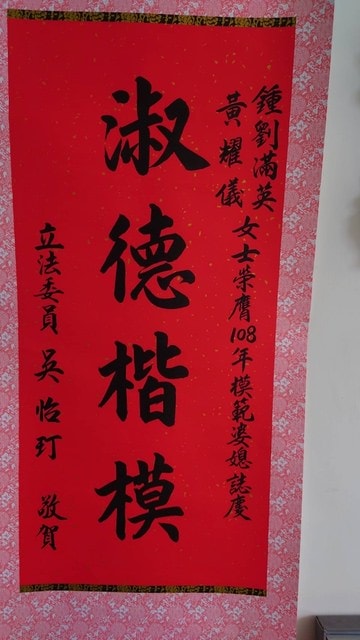 鍾劉滿英
黃耀儀
女士榮膺108年模範婆媳誌慶
淑德楷模
立法委員 吳怡玎 敬賀